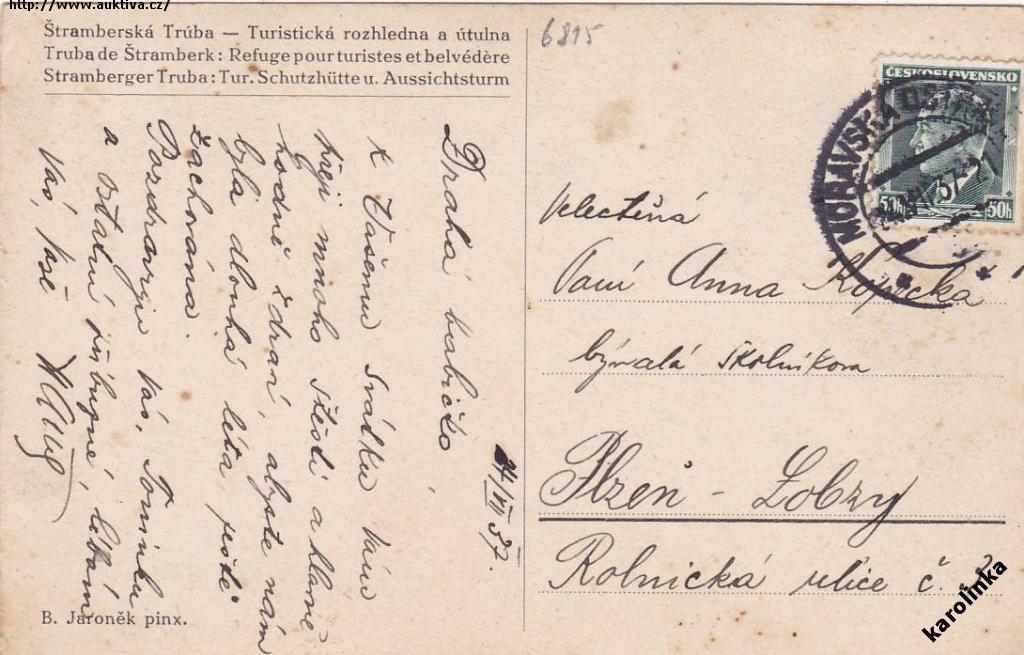 http://www.auktiva.cz/
Štramberská Trúba — Turistická rozhledna a útulna
Truba de Štramberk: Refuge pour turistes et belvédère
Stramberger Truba: Tur. Schutzhütte u. Aussichtsturm
6815
ČESKOSLOVENSKO
50h 50h
MORAVSKÁ OSTRAVA
37-21
24/VII 37.
Drahá babičko,
K Vašemu Svátku Vám
přeji mnoho štěstí a hlavně
hodně zdraví, abyste nám
byla dlouhá léta ještě
zachována.
Pozdravuji Vás, Toninku
a ostatní příbuzné, líbám
Vás, Váš
Velectěná
Paní Anna Kopecká
bývalá školníkova
Plzeň - Lobzy
Rolnická ulice č.
B. Jaroněk pinx.
karolinka